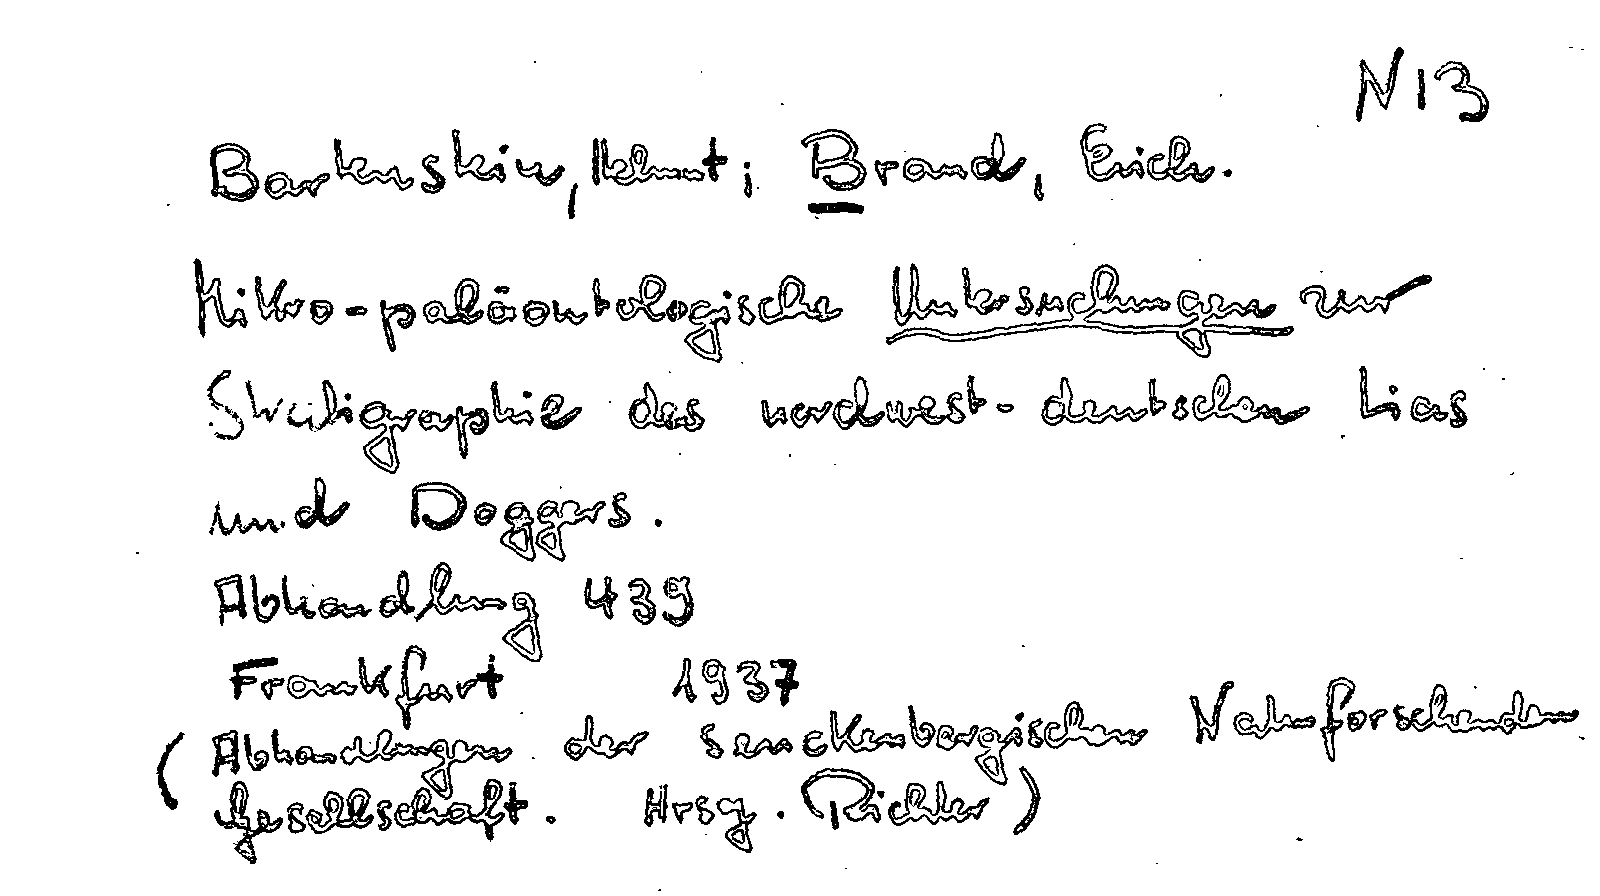 N13
Bartenstein, Helmut; Brand, Erich.
Mikro-paläontologische Untersuchungen zur
Stratigraphie des nordwest-deutschen Lias
und Doggers.
Abhandlung 439
Frankfurt 1937
(Abhandlungen der Senckenbergischen Naturforschenden
Gesellschaft. Hrsg. Richter)